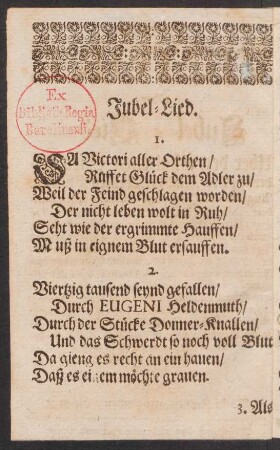 Ex
Biblioth. Regia
Berolinensi.
Jubel-Lied.
1.
SA Victori aller Orthen/
Ruffet Glück dem Adler zu/
Weil der Feind geschlagen worden/
Der nicht leben wolt in Ruh/
Seht wie der ergrimmte Hauffen/
Muß in eignem Blut ersauffen.
2.
Viertzig tausend seynd gefallen/
Durch EUGENI Heldenmuth/
Durch der Stücke Donner-Knallen/
Und das Schwerdt so noch voll Blut
Da gieng es recht an ein hauen/
Daß es einem möchte grauen.
3. Als